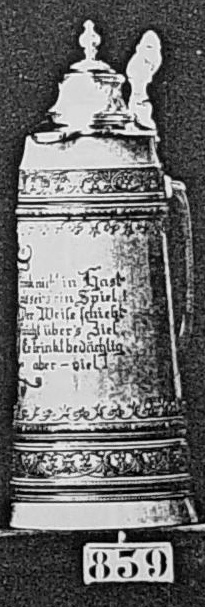 in Hast
ein Spiel!
Der Weise schießt
nicht über's Ziel
Er trinkt bedächtig
aber – viel!
859